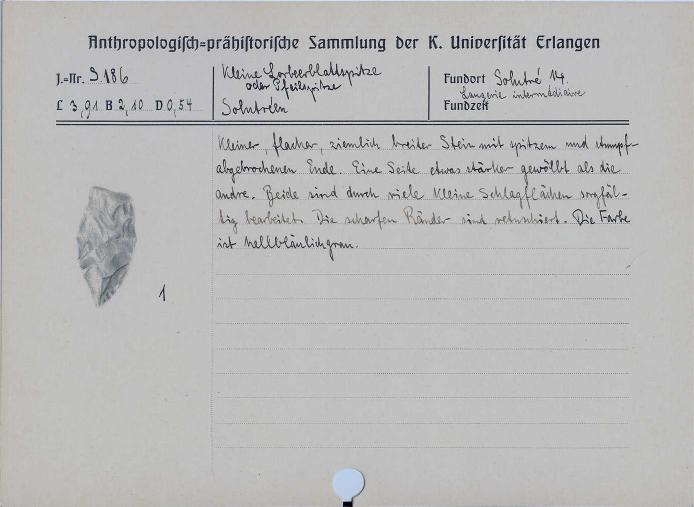 Anthropologisch=prähistorische Sammlung der K. Universität Erlangen
J.=Nr. S. 186
L 3,91 B 2,10 D 0,54
Kleine Lorbeerblattspitze
oder Pfeilspitze
Solutréen
Fundort Solutré 14.
Laugerie intermédiaire
Fundzeit
Kleiner, flacher, ziemlich breiter Stein mit spitzem und stumpf-
abgebrochenen Ende. Eine Seite etwas stärker gewölbt als die
andre. Beide sind durch viele kleine Schlagflächen sorgfäl-
tig bearbeitet. Die scharfen Ränder sind retuschiert. Die Farbe
ist hellbläulichgrau.
1